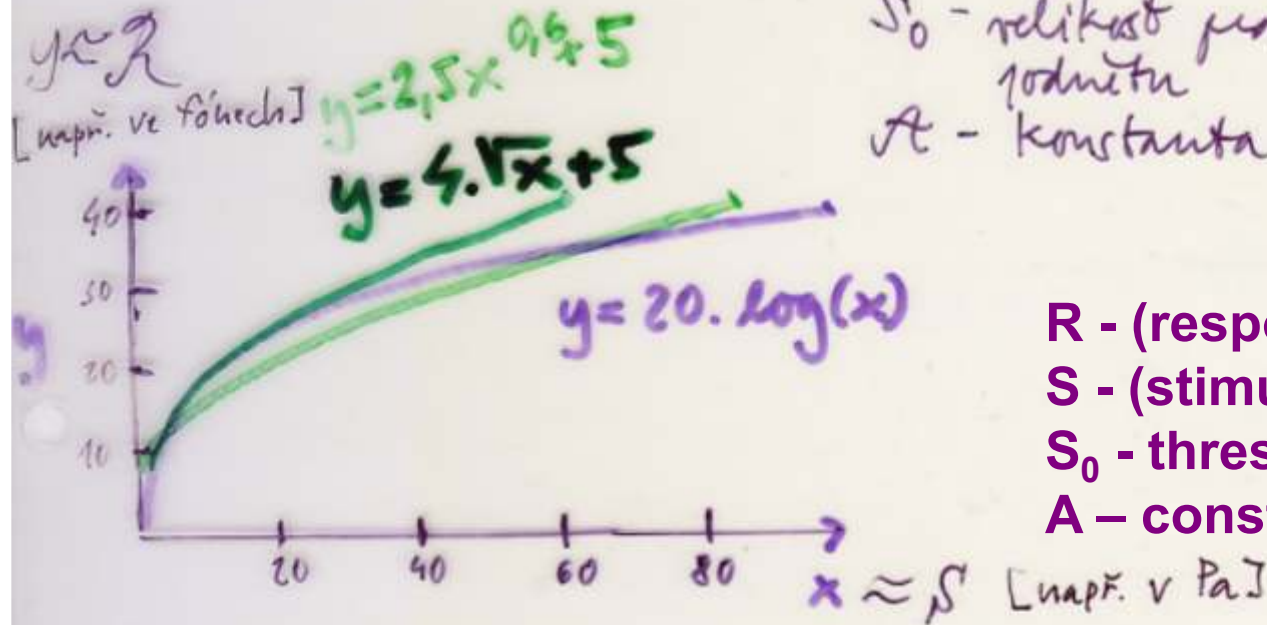 y ≈ R
[např. ve fónech]
y=2,5x^0,6+5
y=5.√x+5
S₀ - velikost
podnětu
A - konstanta
40
30
20
10
y
y= 20. log(x)
R - (respo
S - (stimu
S₀ - thres
A – const
20 40 60 80
x ≈ S [např. v Pa]